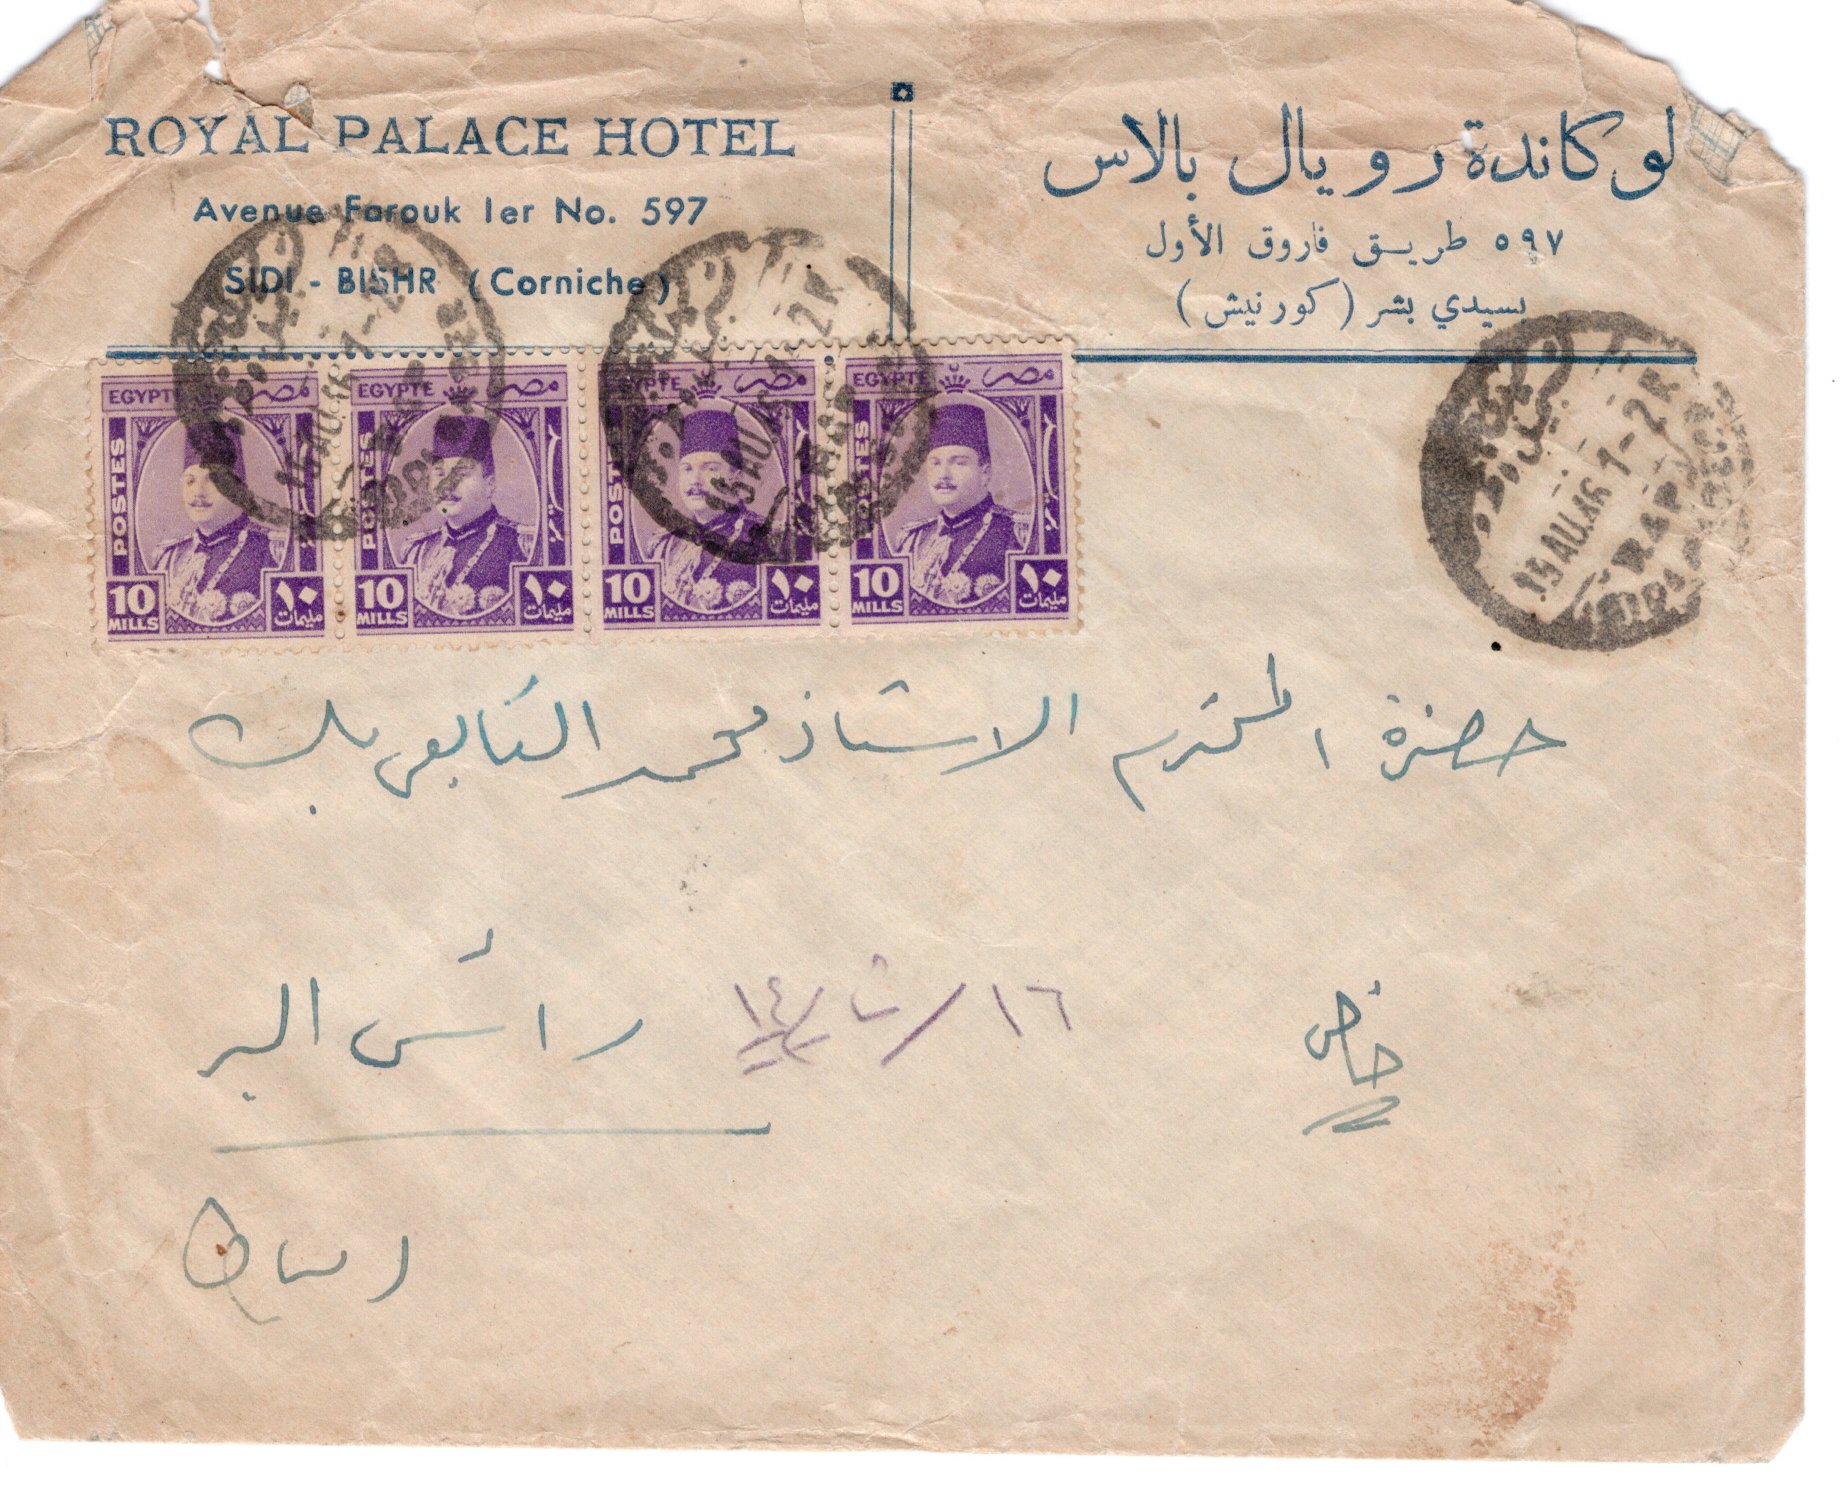 ROYAL PALACE HOTEL
Avenue Farouk 1er No. 597
SIDI - BISHR (Corniche)
لوكاندة رويال بالاس
٥٩٧ طريق فاروق الأول
بسيدي بشر (كورنيش)
EGYPTE مصر
POSTES
10 MILLS ١٠ مليمات
EGYPTE مصر
POSTES
10 MILLS ١٠ مليمات
EGYPTE مصر
POSTES
10 MILLS ١٠ مليمات
EGYPTE مصر
POSTES
10 MILLS ١٠ مليمات
15 AU.46 1-2 R
15 AU.46 1-2 R
15 AU.46 1-2 R
حضرة المحترم الاستاذ محمد التابعى بك
خاص
رأس البر